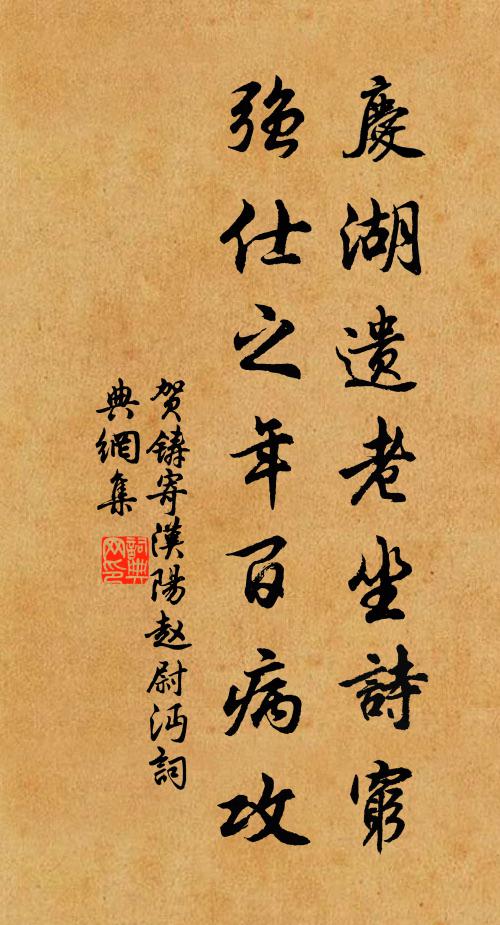 慶湖遗老坐詩窮
强仕之年百病攻
贺鑄寄漢陽趙尉沔詞
典網集
詞典
网印